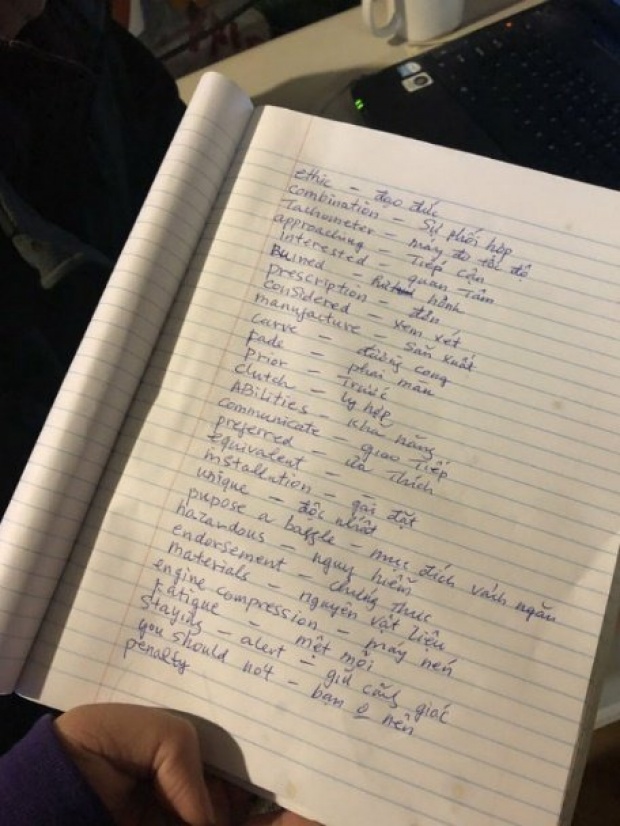 ethic – đạo đức
combination – Sự phối hợp
Tachometer – máy đo tốc độ
approaching – Tiếp cận
interested – quan Tâm
Buined – hỏnh
prescription – đơn
considered – xem xét
manufacture – Sản xuất
curve – đường cong
fade – phai màu
prior – Trước
clutch – ly hợp
ABilities – Kha năng
communicate – giao Tiếp
preferred – ưa Thích
equivalent –
installation – gài đặt
unique – độc nhất
pupose a baffle – mục đích vách ngăn
hazardous – nguy hiểm
endorsement – chứng thực
materials – nguyên vật liệu
engine compression – máy nén
fatigue – mệt mỏi
staying – alert – giữ cảnh giác
you should not – bạn o nên
penalty